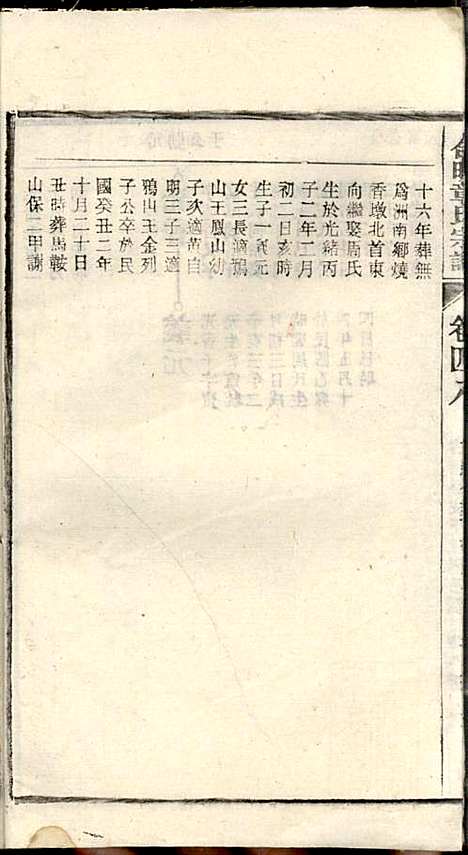 十六年葬無
爲洲南鄉燒
香墩北首東
向繼娶周氏
生於光緒丙
子二年二月
初二日亥時
生子一興元
女三長適鴉
山王鳳山幼
子次適黃自
期三子三適
鴉山王金列
子公卒於民
國癸丑二年
十月二十日
丑時葬馬鞍
山保二甲謝
章氏宗譜
卷四八